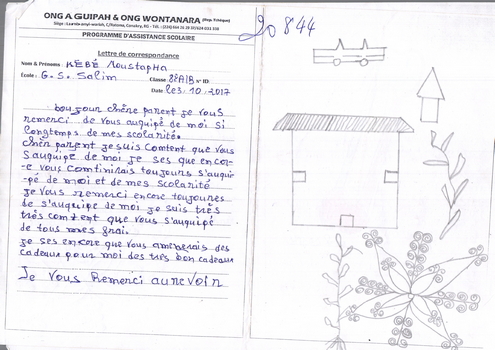 ONG A GUIPAH & ONG WONTANARA (Rep. Tchèque)
PROGRAMME D'ASSISTANCE SCOLAIRE
Lettre de correspondance
Nom & Prénoms : KÉBÉ Moustapha
École : G. S. Salim Classe 8è A/B N° ID
Date: le 3. 10. 2017
20 844
boujour chère parent je vous
remerci de vous auquipé de moi si
longtemps de mes scolarité.
chèr parent je suis comtent que vous
s'auquipé de moi je ses que encor-
e vous comtiniais toujours s'auqui-
pé de moi et de mes scolarité
Je vous remerci encore toujoures
de s'auquipe de moi je suis très
très comtent que vous s'auquipé
de tous mes frai.
je ses encore que vous aminerais des
cadeaux pour moi des très bon cadeaux
Je vous Remerci aurevoir